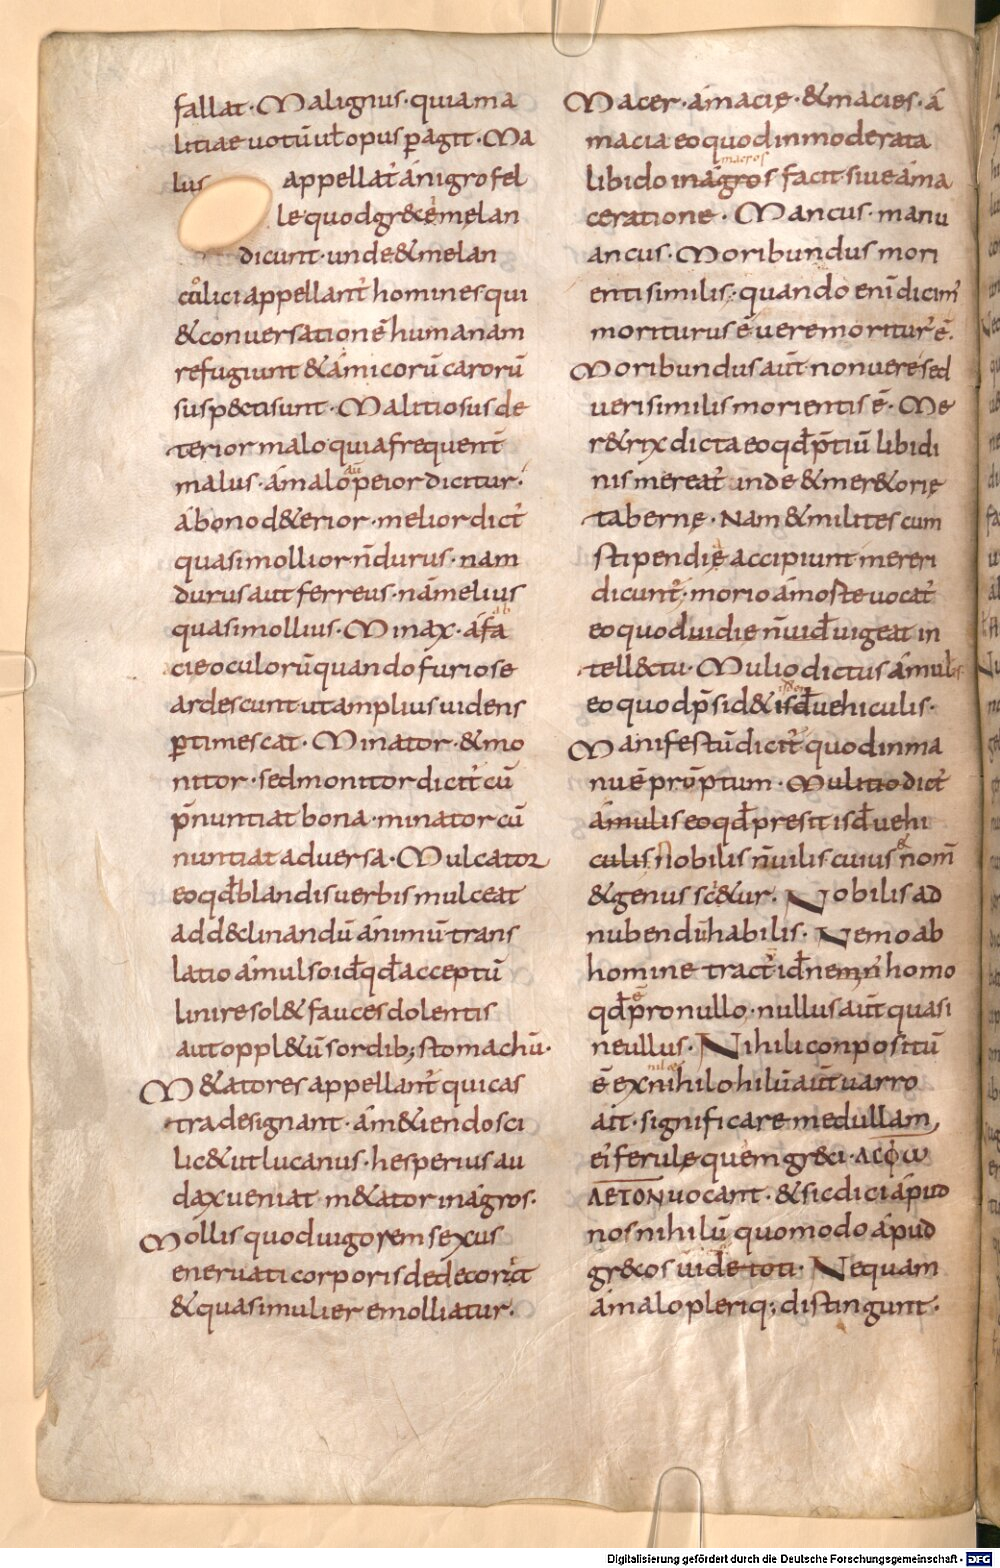 fallat · Malignus · quia ma
litiae uotū uł opus ꝑagit · Ma
lus appellat᷑ á nigro fel
le quod gr&cé melan
dicunt · unde & melan
colici appellant᷑ homines qui
& conuersationē humanam
refugiunt & ámicorū carorū
susp&ti sunt · Malitiosus de
terior malo quia frequent̄
malus · á malo aū peior dicitur ·
á bono d&erior · melior dict᷑
quasi mollior n̄ durus · nam
durus aut ferreus · nā melius
quasi mollius · Minax · á fa
cie oculorū quando furiose
ardescunt ut amplius uidens
ꝑtimescat · Minator · & mo
nitor · sed monitor dicit᷑ cū
p̄nuntiat bona · minator cū
nuntiat aduersa · Mulcator
eo qđ blandis uerbis mulceat
ad d&clinandū ánimū trans
latio á mulso iđ qđ acceptū
linire sol& fauces dolentis
aut oppl&ū sordib; stomachū ·
M&atores appellant᷑ qui cas
tra designant · á m&iendo sci
lic& ut lucanus · hesperius au
dax ueniat m&ator in ágros ·
Mollis quod uigorem sexus
eneruati corporis dedecorat
& quasi mulier emolliatur ·
Macer · á macię · & macies · á
macia eo quod inmoderata
macros
libido in ágros facit siue á ma
ceratione · Mancus · manu
ancus · Moribundus mori
enti similis · quando enī dicim᷑
moriturus ē uere moritur᷑ ē ·
Moribundus aūt non uere sed
uerisimilis morientis ē · Me
r&rix dicta eo qđ p̄tiū libidi
nis mereat᷑ unde & mer&orię
tabernę · Nam & milites cum
stipendię accipiunt mereri
dicunt᷑ · morio á moste uocat᷑
eo quod uidie n̄ uiđ uigeat in
tell&tu · Mulio dictus á mulis
eo quod p̄sid& isđ uehiculis ·
Manifestū dicit᷑ quod in ma
nu ē prūptum · Mulitio dict᷑
á mulis eo qđ presit isđ uehi
culis Nobilis n̄ uilis cuius & nom̄
& genus sc&ur · Nobilis ad
nubendū habilis · Nemo ab
homine tract᷑ iđ nem̄ n̄ homo
qđ ē pro nullo · nullus aūt quasi
ne ullus · Nihili conpositū
ē ex nihilo hilū aūt uarro
ait · significare medullam
ei ferulę quem gr&ci · ΑСΦω
ΛΕΤΟΝ uocant · & sic dici ápud
nos nihilū quomodo ápud
gr&cos uide toti · Nequam
á malo pleriq; distingunt ·
Digitalisierung gefördert durch die Deutsche Forschungsgemeinschaft - DFG